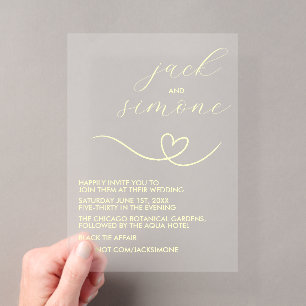 jack
AND
simone
HAPPILY INVITE YOU TO
JOIN THEM AT THEIR WEDDING
SATURDAY JUNE 1ST, 20XX
FIVE-THIRTY IN THE EVENING
THE CHICAGO BOTANICAL GARDENS,
FOLLOWED BY THE AQUA HOTEL
BLACK TIE AFFAIR
NOT.COM/JACKSIMONE